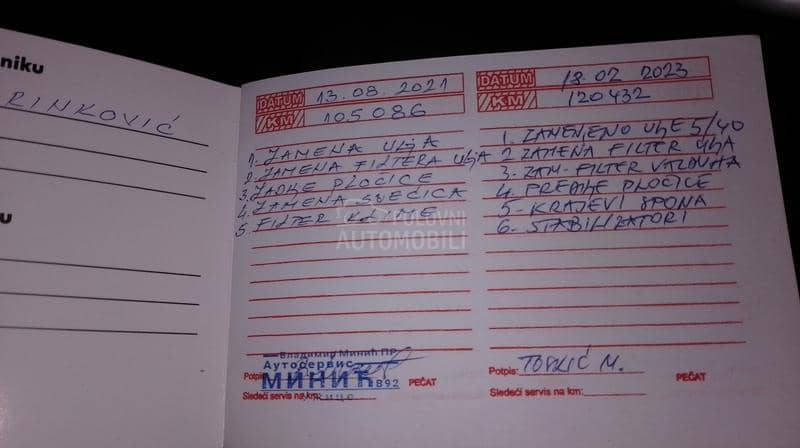 niku
RINKOVIĆ
u
DATUM 13.08.2021
KM 105086
1. ZAMENA ULJA
2. ZAMENA FILTERA ULJA
3. ZADNJE PLOČICE
4. ZAMENA SVEĆICA
5. FILTER KLIME
Владимир Минић ПР
Аутосервис
МИНИЋ B92
Potpis:
PEČAT
Sledeći servis na km:
DATUM 18.02 2023
KM 120432
1. ZAMENJENO ULJE 5/40
2 ZAMENA FILTER ULJA
3. ZAM. FILTER VAZDUHA
4. PREDNJE PLOČICE
5. KRAJEVI SPONA
6. STABILIZATORI
Potpis: TOPLIĆ M.
PEČAT
Sledeći servis na km:
POLOVNI
AUTOMOBILI